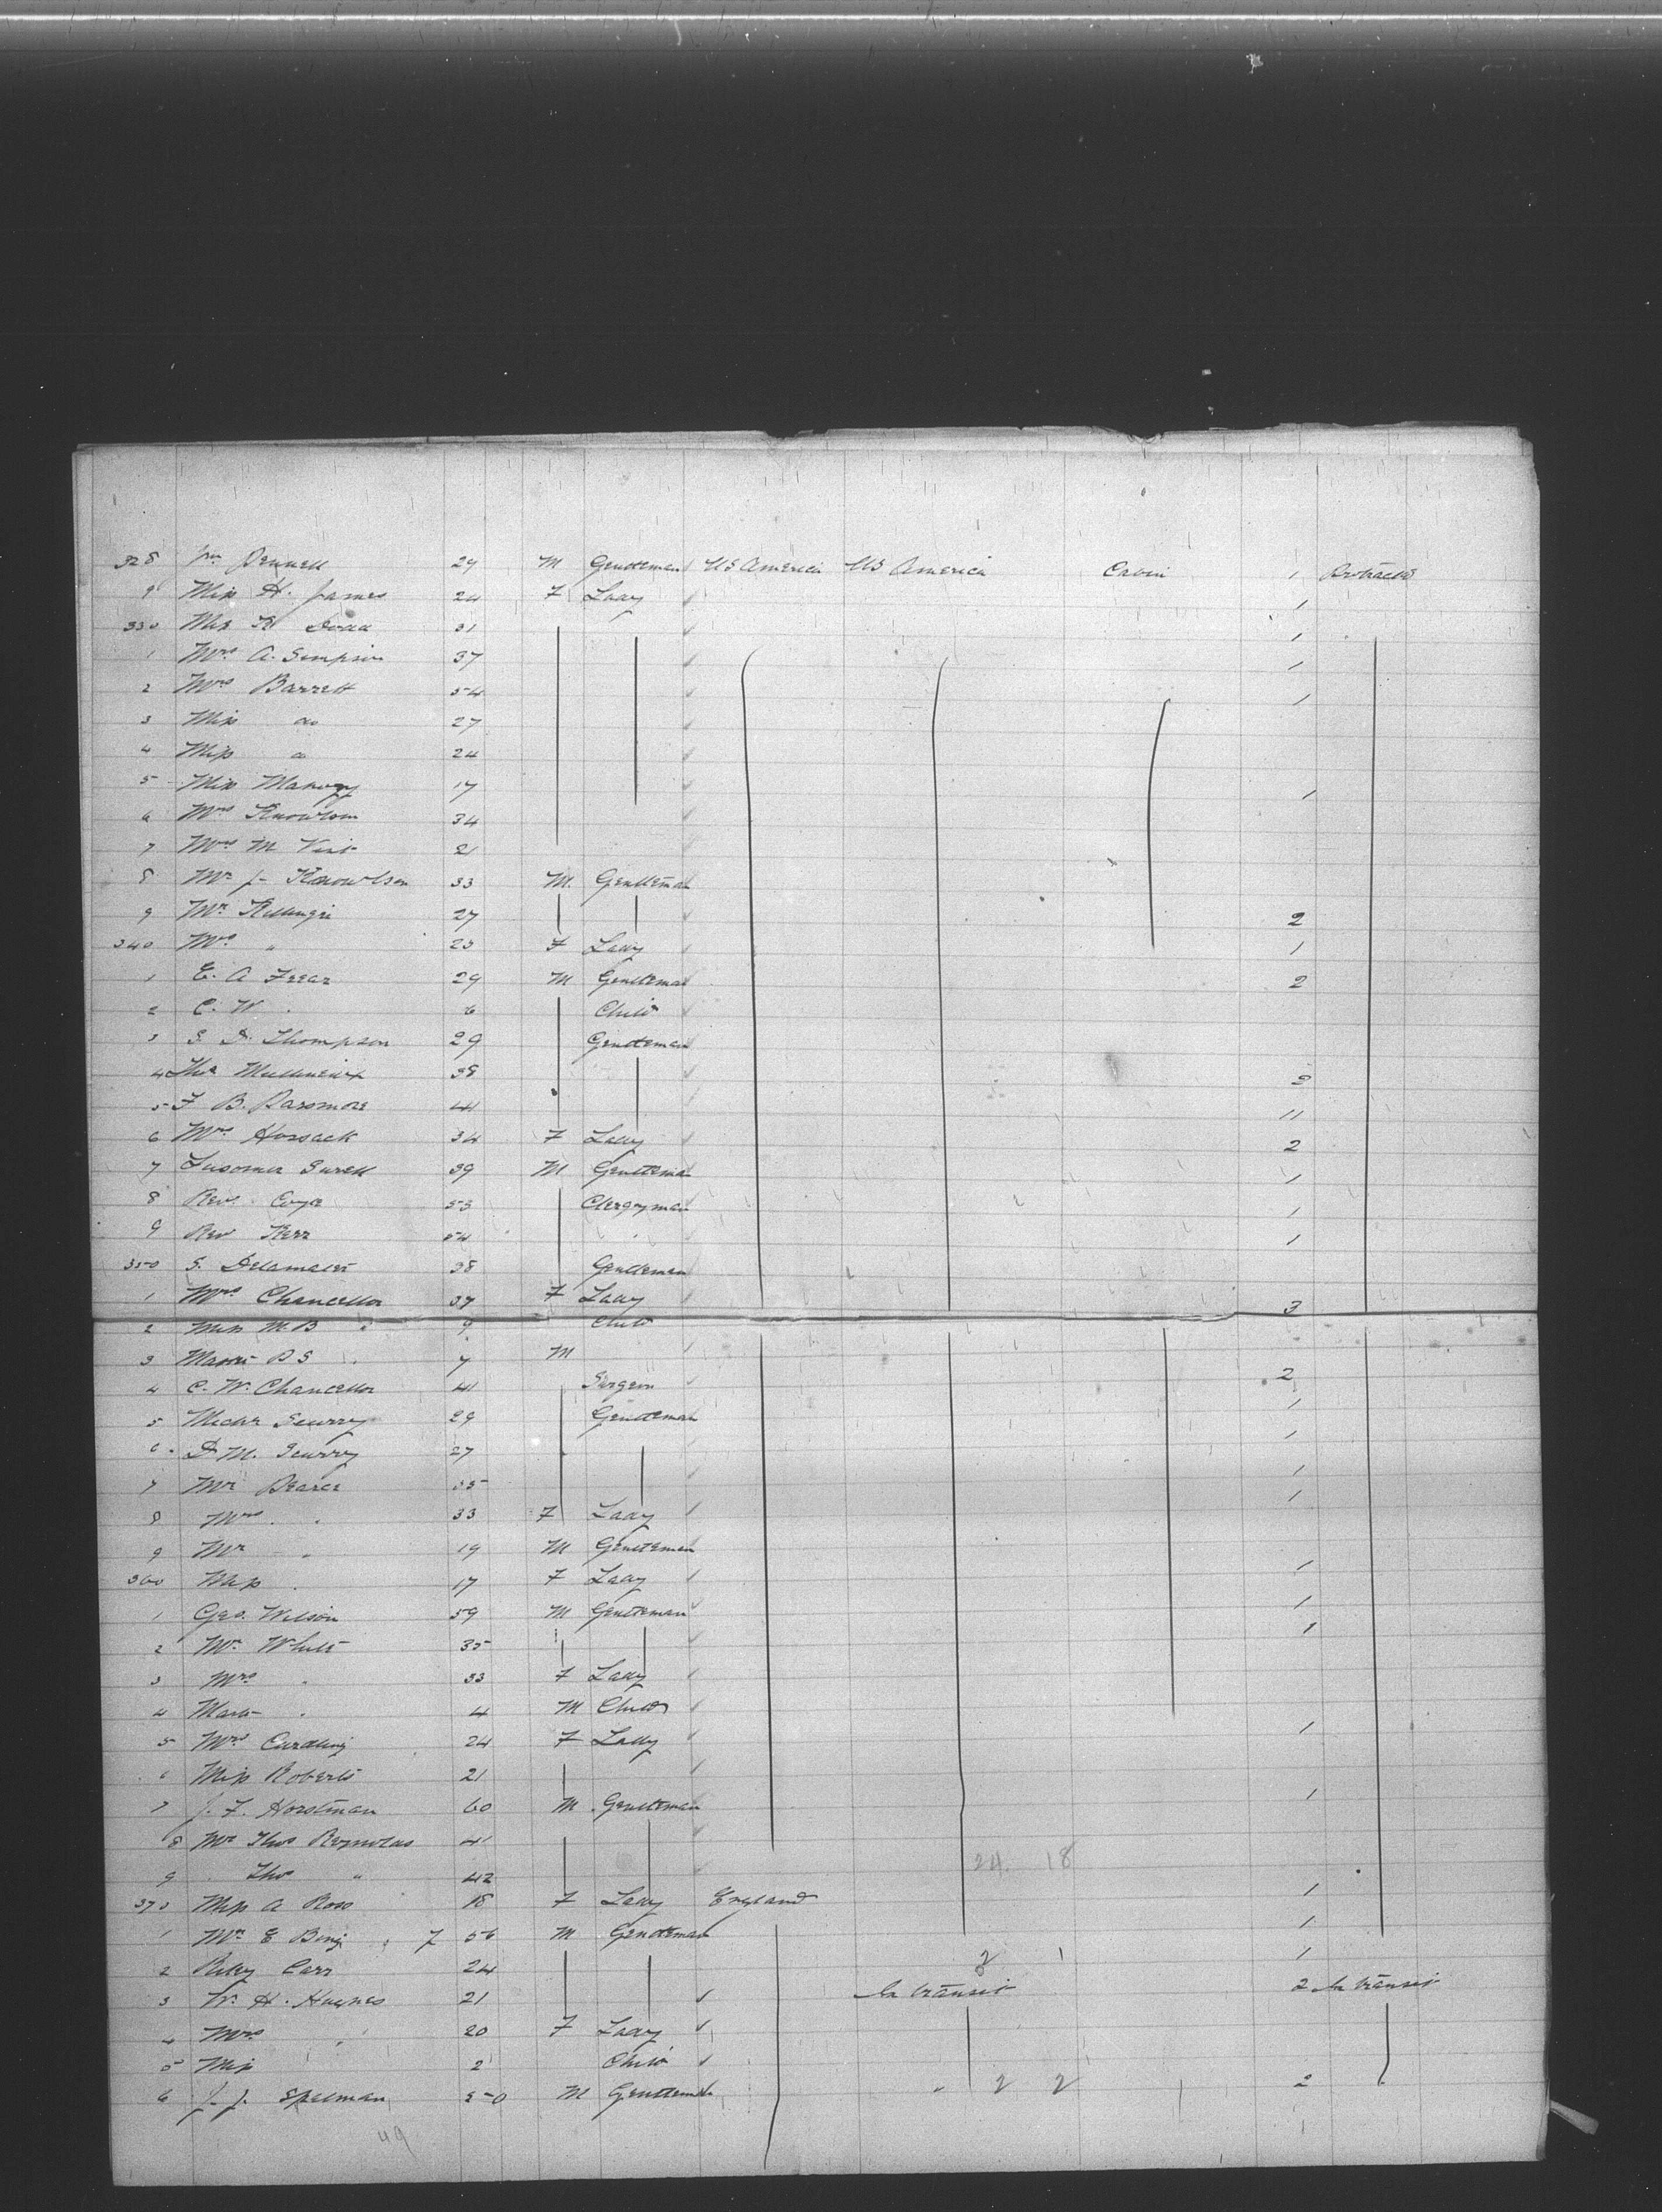 328 Wm Pennell 29 M Gentleman US America US America Cabin 1 Protracted
9 Miss H. James 24 F Lady 1
330 K Dodd 31 1
1 Mrs A. Simpson 37 1
2 Mrs Barrett 54 1
3 Miss do 27
4 Miss do 24
5 Miss 17 1
6 Mrs Knowlson 34
7 Mrs M 21
8 Mr J. Knowlson 33 M. Gentleman
9 Mr 27 2
340 Mrs " 23 F Lady 1
1 E. A Frear 29 M Gentleman 2
2 C. W " 6 Child
3 S. D. Thompson 29 Gentleman
4 Thos 38 2
5 F B. 41 11
6 Mrs Hossack 34 F Lady 2
7 39 M Gentleman 1
8 Rev. 53 Clergyman 1
9 Rev Kerr 54 " 1
350 S. Delamater 38 Gentleman
1 Mrs Chancellor 37 F Lady 3
2 Miss M. B " 9 Child
3 Master B S " 7 M
4 C. W. Chancellor 41 Surgeon 2
5 Scurry 29 Gentleman 1
6 D. M. Scurry 27 1
7 Mr Pearce 35 1
8 Mrs " 33 F Lady 1
9 Mr " 19 M Gentleman
360 Miss " 17 F Lady 1
1 Geo. Wilson 59 M Gentleman 1
2 Mr. White 35 1
3 Mrs " 33 F Lady
4 Mast " 4 M Child
5 Mrs 24 F Lady 1
6 Miss Roberts 21
7 J. F. Horstman 60 M Gentleman 1
8 Mr Thos Reynolds 41
9 " Thos " 42 24. 18
370 Miss A Ross 18 F Lady England 1
1 Mr E 56 M Gentleman 1
2 Riley Carr 24 2 1 1
3 W. H. Hughes 21 In transit 2 In transit
4 Mrs " 20 F Lady
5 Miss " 2 Child
6 J. J. Spelman 50 M Gentleman " 2 2 2
49